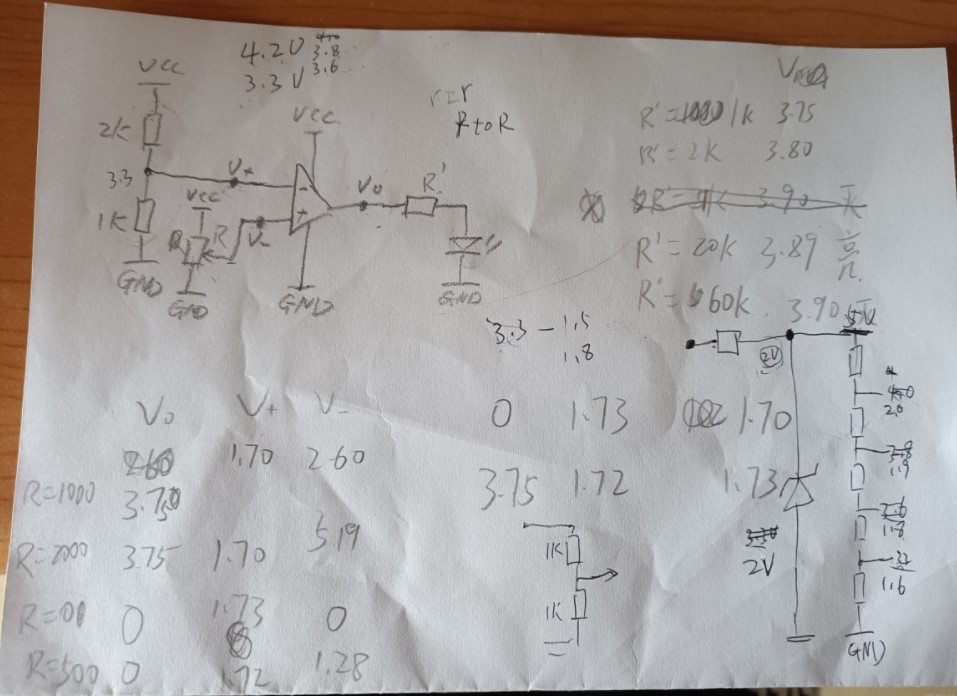 4.2V 3.8
3.3V 3.6
VCC
2K
3.3
1K
GND
VCC
R
GND
V+
V-
VCC
-
+
GND
Vo
R'
GND
r=r
R to R
R'= 1K 3.75
R'=2K 3.80
R'=4K 3.90 灭
R'=20K 3.89 亮
R'=60K 3.90 灭
3.3-1.5
1.8
2V
2V
2.0
1.9
1.8
1.6
GND
Vo V+ V-
2.60 1.70 2.60
R=1000 3.75
R=2000 3.75 1.70 5.19
R=00 0 1.73 0
R=500 0 1.72 1.28
0 1.73 1.70
3.75 1.72 1.73
1K
1K